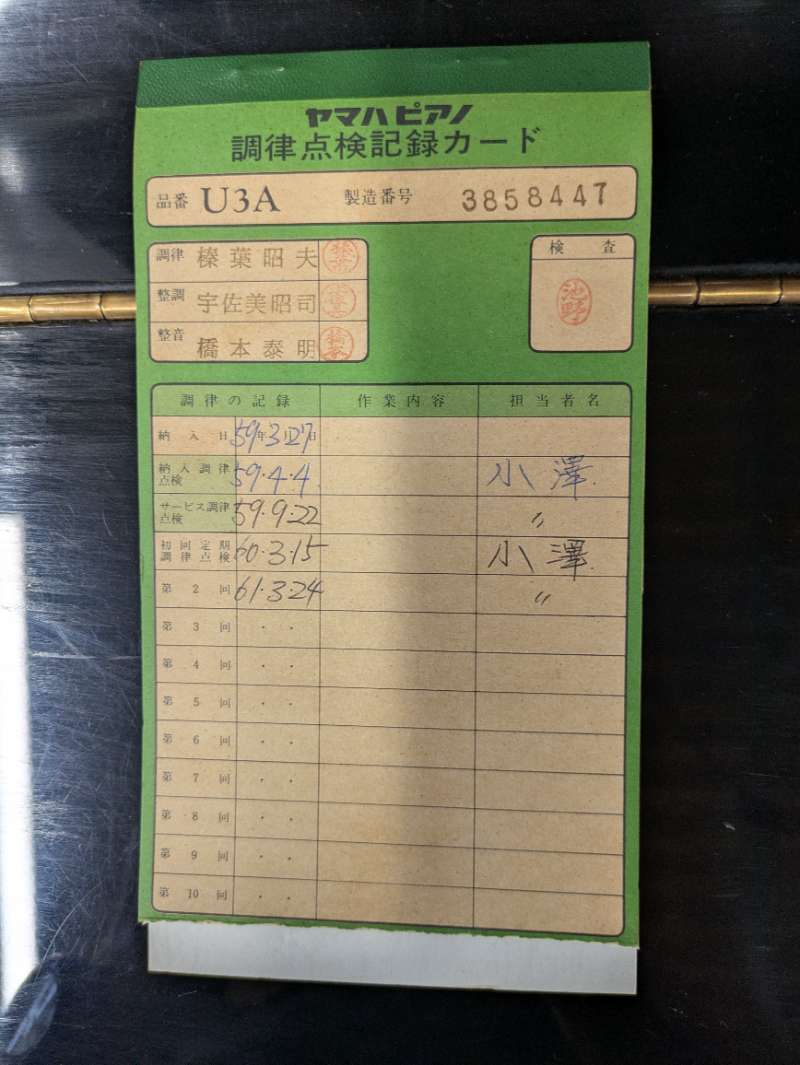 ヤマハピアノ
調律点検記録カード
品番 U3A 製造番号 3858447
調律 榛葉昭夫
整調 宇佐美昭司
整音 橋本泰明
検査
池野
調律の記録 作業内容 担当者名
納入日 59年3月27日
納入調律点検 59・4・4 小澤
サービス調律点検 59・9・22 〃
初回定期調律点検 60・3・15 小澤
第2回 61・3・24 〃
第3回 ・・
第4回 ・・
第5回 ・・
第6回 ・・
第7回 ・・
第8回 ・・
第9回 ・・
第10回 ・・